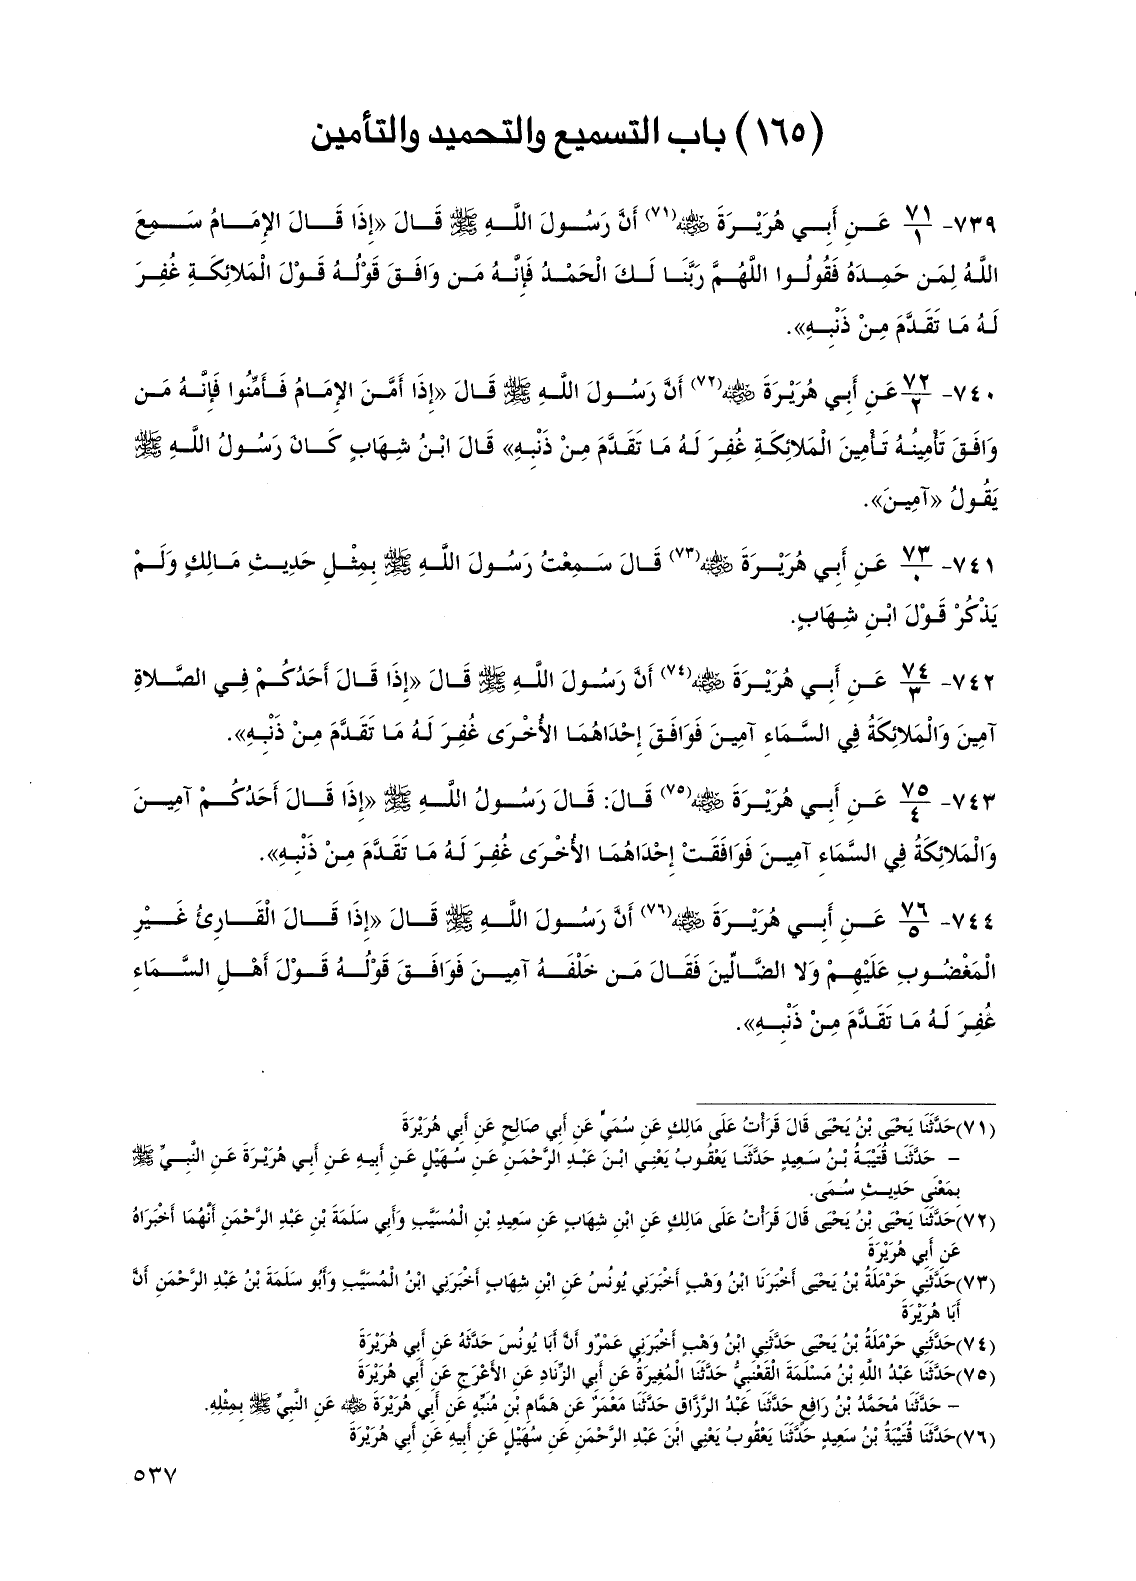 (١٦٥) باب التسميع والتحميد والتأمين
٧٣٩- ٧١/١ عَنِ أَبِي هُرَيْرَةَ ﵁(٧١) أَنَّ رَسُولَ اللَّهِ ﷺ قَالَ «إِذَا قَالَ الإِمَامُ سَمِعَ
اللَّهُ لِمَن حَمِدَهُ فَقُولُوا اللَّهُمَّ رَبَّنَا لَكَ الْحَمْدُ فَإِنَّهُ مَن وَافَقَ قَوْلُهُ قَوْلَ الْمَلائِكَةِ غُفِرَ
لَهُ مَا تَقَدَّمَ مِنْ ذَنْبِهِ».
٧٤٠- ٧٢/٢ عَنِ أَبِي هُرَيْرَةَ ﵁(٧٢) أَنَّ رَسُولَ اللَّهِ ﷺ قَالَ «إِذَا أَمَّنَ الإِمَامُ فَأَمِّنُوا فَإِنَّهُ مَن
وَافَقَ تَأْمِينُهُ تَأْمِينَ الْمَلائِكَةِ غُفِرَ لَهُ مَا تَقَدَّمَ مِنْ ذَنْبِهِ» قَالَ ابْنُ شِهَابٍ كَانَ رَسُولُ اللَّهِ ﷺ
يَقُولُ «آمِينَ».
٧٤١- ٧٣/٠ عَنِ أَبِي هُرَيْرَةَ ﵁(٧٣) قَالَ سَمِعْتُ رَسُولَ اللَّهِ ﷺ بِمِثْلِ حَدِيثِ مَالِكٍ وَلَمْ
يَذْكُرْ قَوْلَ ابْنِ شِهَابٍ.
٧٤٢- ٧٤/٣ عَنِ أَبِي هُرَيْرَةَ ﵁(٧٤) أَنَّ رَسُولَ اللَّهِ ﷺ قَالَ «إِذَا قَالَ أَحَدُكُمْ فِي الصَّلاةِ
آمِينَ وَالْمَلائِكَةُ فِي السَّمَاءِ آمِينَ فَوَافَقَ إِحْدَاهُمَا الأُخْرَى غُفِرَ لَهُ مَا تَقَدَّمَ مِنْ ذَنْبِهِ».
٧٤٣- ٧٥/٤ عَنِ أَبِي هُرَيْرَةَ ﵁(٧٥) قَالَ: قَالَ رَسُولُ اللَّهِ ﷺ «إِذَا قَالَ أَحَدُكُمْ آمِينَ
وَالْمَلائِكَةُ فِي السَّمَاءِ آمِينَ فَوَافَقَتْ إِحْدَاهُمَا الأُخْرَى غُفِرَ لَهُ مَا تَقَدَّمَ مِنْ ذَنْبِهِ».
٧٤٤- ٧٦/٥ عَنِ أَبِي هُرَيْرَةَ ﵁(٧٦) أَنَّ رَسُولَ اللَّهِ ﷺ قَالَ «إِذَا قَالَ الْقَارِئُ غَيْرِ
الْمَغْضُوبِ عَلَيْهِمْ وَلا الضَّالِّينَ فَقَالَ مَن خَلْفَهُ آمِينَ فَوَافَقَ قَوْلُهُ قَوْلَ أَهْلِ السَّمَاءِ
غُفِرَ لَهُ مَا تَقَدَّمَ مِنْ ذَنْبِهِ».
(٧١)حَدَّثَنَا يَحْيَى بْنُ يَحْيَى قَالَ قَرَأْتُ عَلَى مَالِكٍ عَن سُمَيٍّ عَن أَبِي صَالِحٍ عَن أَبِي هُرَيْرَةَ
- حَدَّثَنَا قُتَيْبَةُ بْنُ سَعِيدٍ حَدَّثَنَا يَعْقُوبُ يَعْنِي ابْنَ عَبْدِ الرَّحْمَنِ عَن سُهَيْلٍ عَن أَبِيهِ عَن أَبِي هُرَيْرَةَ عَنِ النَّبِيِّ ﷺ
بِمَعْنَى حَدِيثِ سُمَى.
(٧٢)حَدَّثَنَا يَحْيَى بْنُ يَحْيَى قَالَ قَرَأْتُ عَلَى مَالِكٍ عَنِ ابْنِ شِهَابٍ عَن سَعِيدِ بْنِ الْمُسَيَّبِ وَأَبِي سَلَمَةَ بْنِ عَبْدِ الرَّحْمَنِ أَنَّهُمَا أَخْبَرَاهُ
عَن أَبِي هُرَيْرَةَ
(٧٣)حَدَّثَنِي حَرْمَلَةُ بْنُ يَحْيَى أَخْبَرَنَا ابْنُ وَهْبٍ أَخْبَرَنِي يُونُسُ عَنِ ابْنِ شِهَابٍ أَخْبَرَنِي ابْنُ الْمُسَيَّبِ وَأَبُو سَلَمَةَ بْنُ عَبْدِ الرَّحْمَنِ أَنَّ
أَبَا هُرَيْرَةَ
(٧٤)حَدَّثَنِي حَرْمَلَةُ بْنُ يَحْيَى حَدَّثَنِي ابْنُ وَهْبٍ أَخْبَرَنِي عَمْرٌو أَنَّ أَبَا يُونُسَ حَدَّثَهُ عَن أَبِي هُرَيْرَةَ
(٧٥)حَدَّثَنَا عَبْدُ اللَّهِ بْنُ مَسْلَمَةَ الْقَعْنَبِيُّ حَدَّثَنَا الْمُغِيرَةُ عَن أَبِي الزِّنَادِ عَنِ الأَعْرَجِ عَن أَبِي هُرَيْرَةَ
- حَدَّثَنَا مُحَمَّدُ بْنُ رَافِعٍ حَدَّثَنَا عَبْدُ الرَّزَّاقِ حَدَّثَنَا مَعْمَرٌ عَن هَمَّامِ بْنِ مُنَبِّهٍ عَن أَبِي هُرَيْرَةَ ﵁ عَنِ النَّبِيِّ ﷺ بِمِثْلِهِ.
(٧٦)حَدَّثَنَا قُتَيْبَةُ بْنُ سَعِيدٍ حَدَّثَنَا يَعْقُوبُ يَعْنِي ابْنَ عَبْدِ الرَّحْمَنِ عَن سُهَيْلٍ عَن أَبِيهِ عَن أَبِي هُرَيْرَةَ
٥٣٧